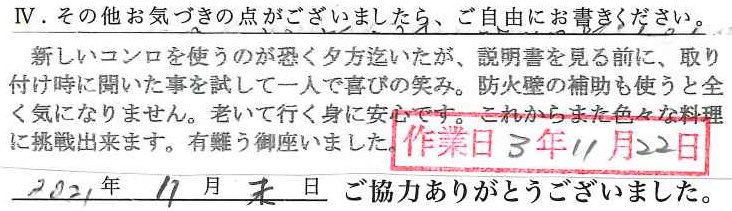 Ⅳ．その他お気づきの点がございましたら、ご自由にお書きください。
新しいコンロを使うのが恐く夕方迄いたが、説明書を見る前に、取り
付け時に聞いた事を試して一人で喜びの笑み。防火壁の補助も使うと全
く気になりません。老いて行く身に安心です。これからまた色々な料理
に挑戦出来ます。有難う御座いました。
作業日 3年11月22日
2021年 11月 末日 ご協力ありがとうございました。